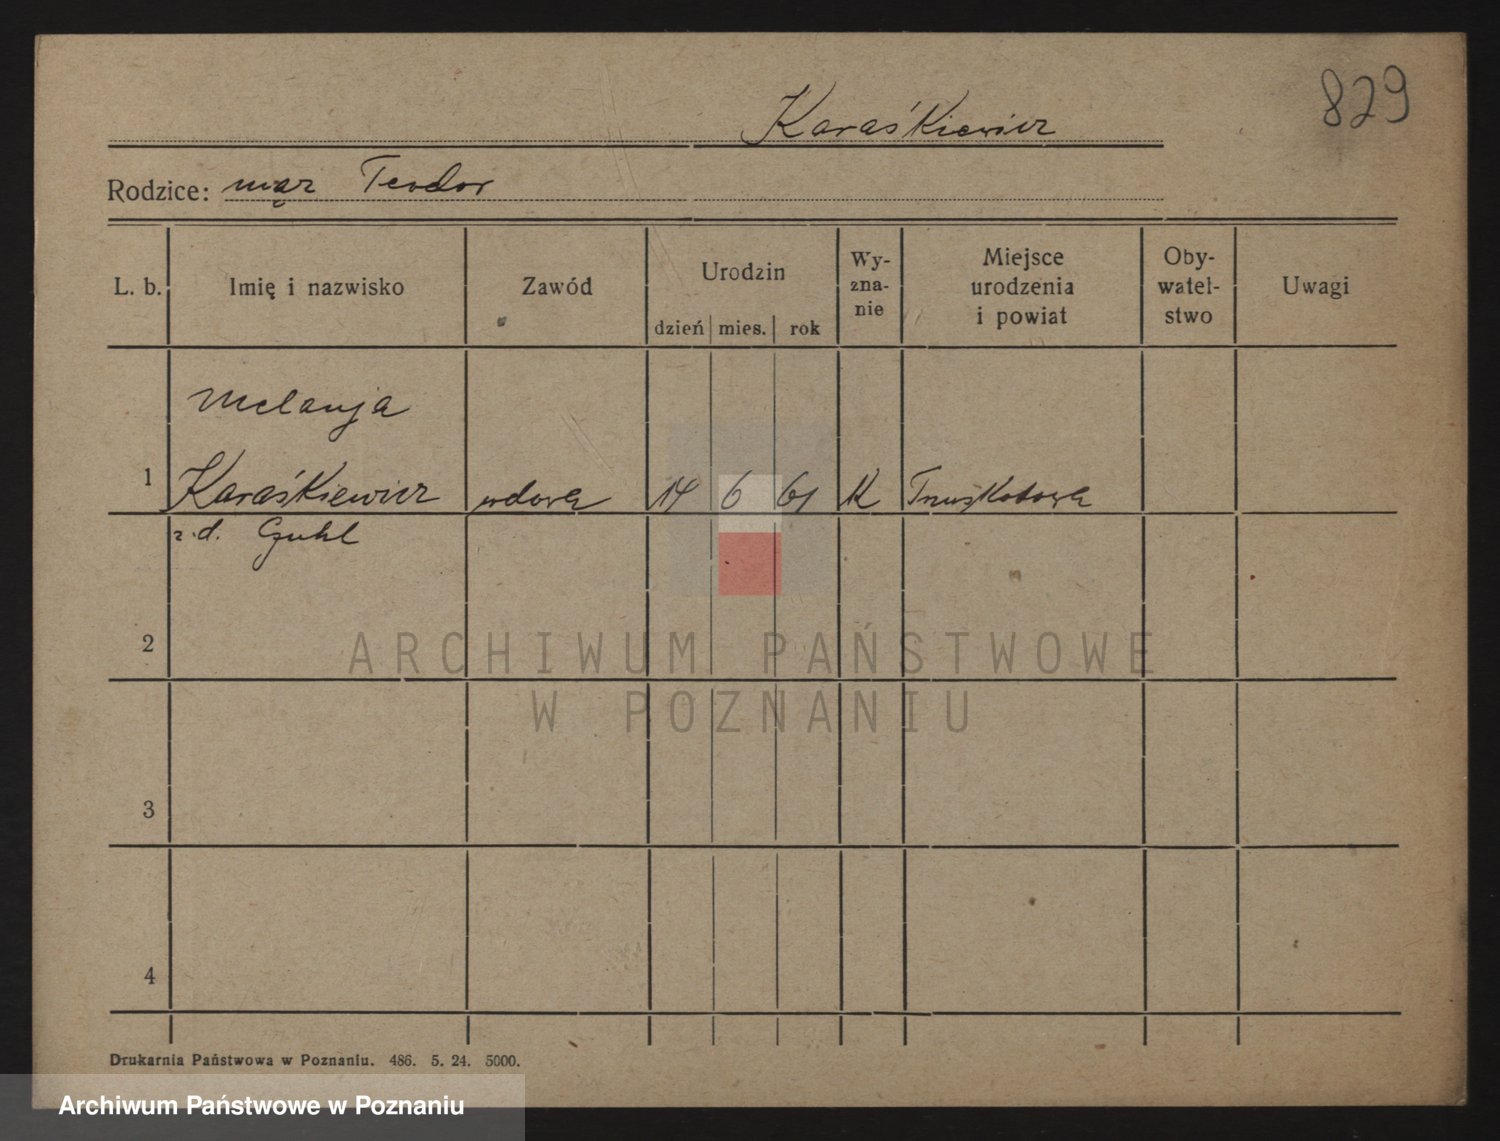 829
Karaśkiewicz
Rodzice: mąż Teodor
L. b. Imię i nazwisko Zawód Urodzin dzień mies. rok Wy- zna- nie Miejsce urodzenia i powiat Oby- watel- stwo Uwagi
Melanja
1 Karaśkiewicz wdowa 14 6 61 K Truskotowa
z. d. Guhl
2
3
4
ARCHIWUM PAŃSTWOWE
W POZNANIU
Drukarnia Państwowa w Poznaniu. 486. 5. 24. 5000.
Archiwum Państwowe w Poznaniu